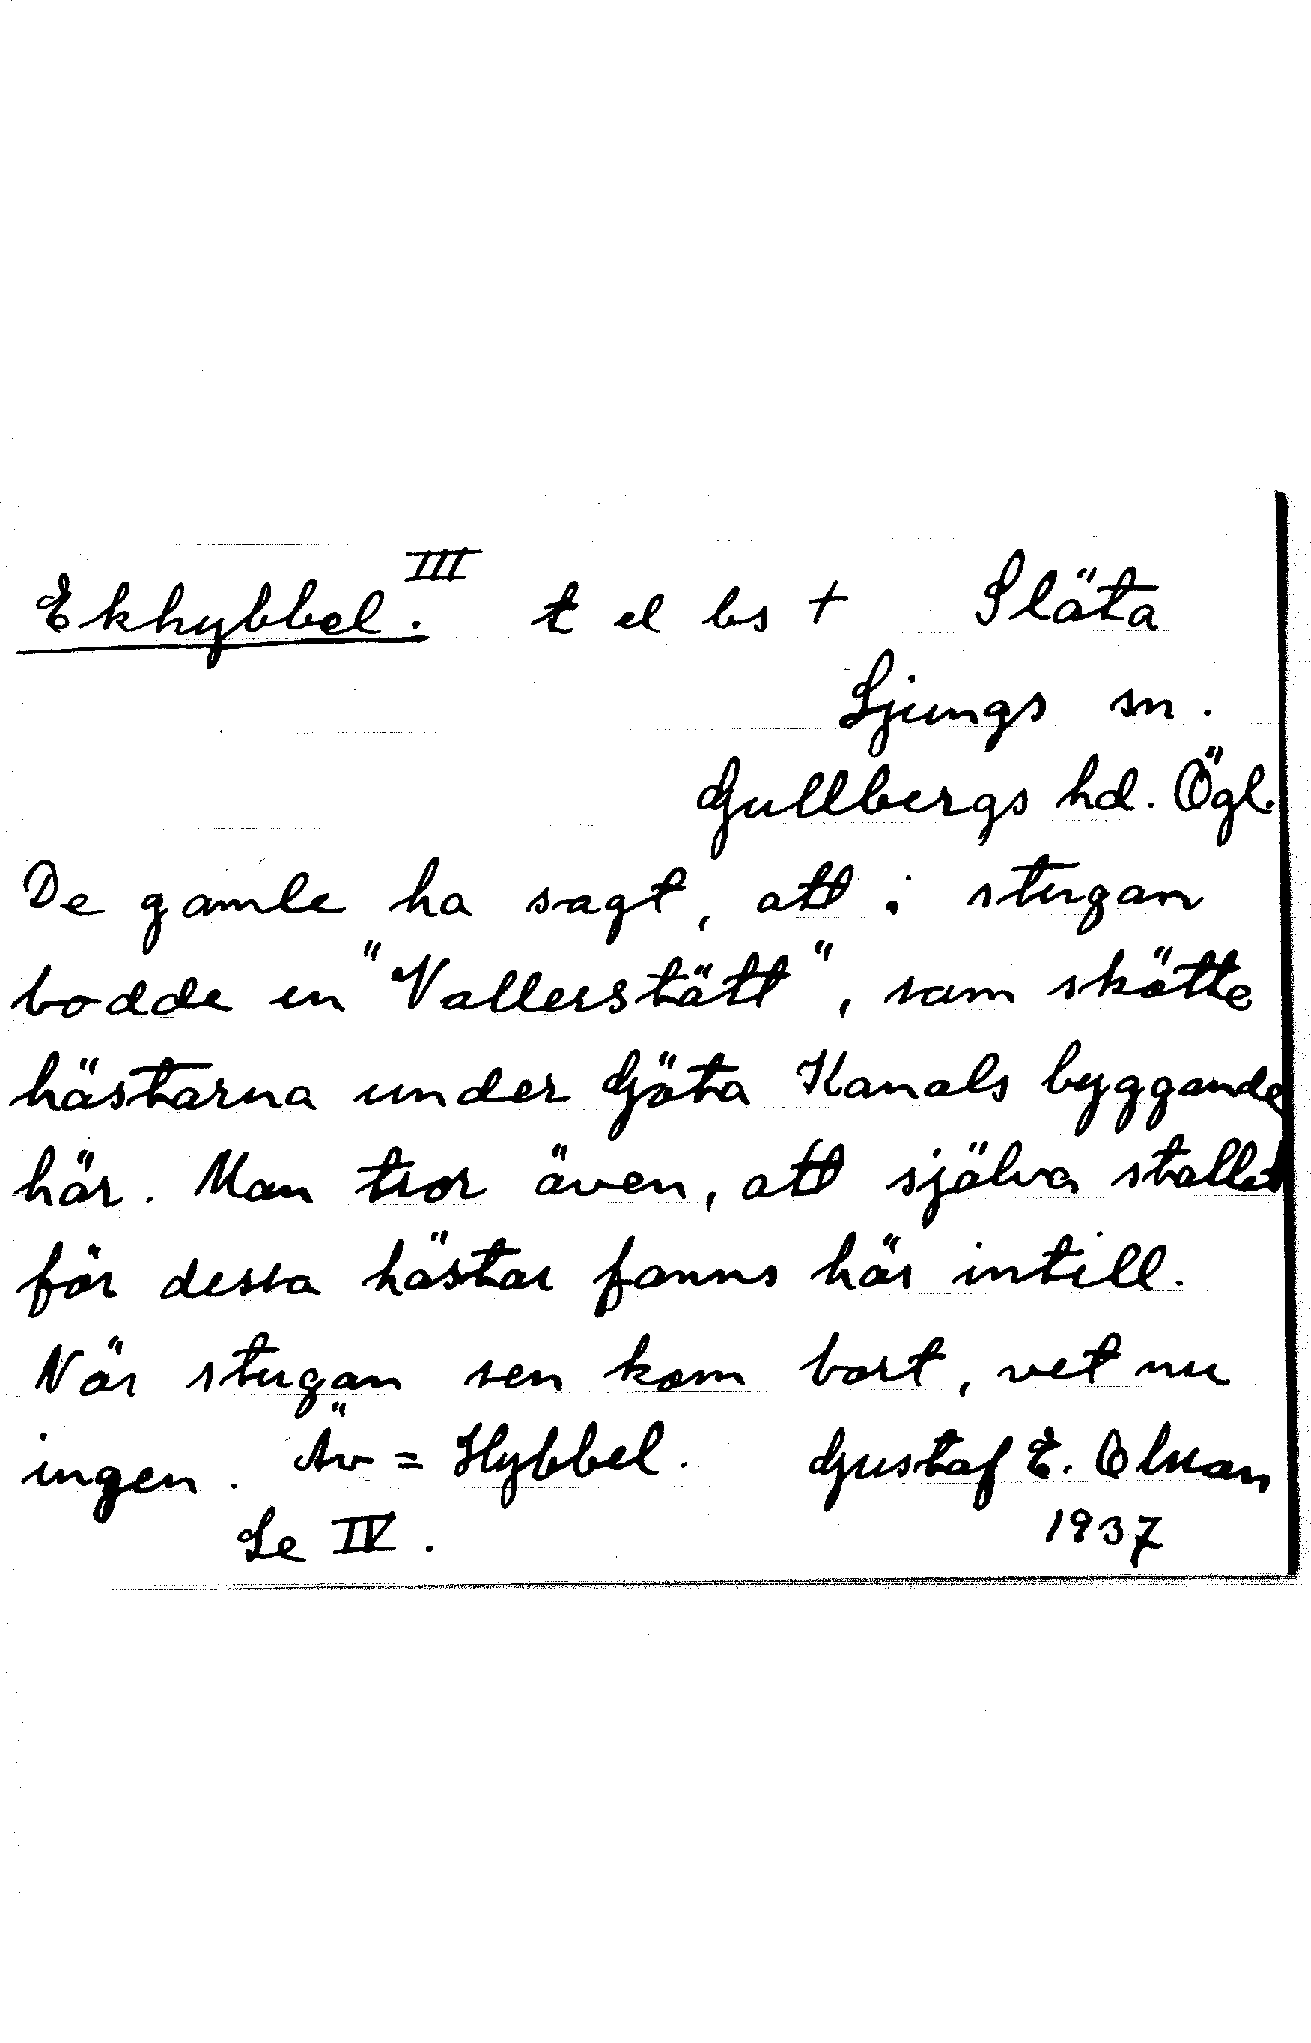 Ekhybbel. III t el bs + Släta
Ljungs sn.
Gullbergs hd. Ögl.
De gamle ha sagt, att i stugan
bodde en "Vallerstätt", som skötte
hästarna under Göta Kanals byggande
här. Man tror även, att själva stallet
för dessa hästar fanns här intill.
När stugan sen kom bort, vet nu
ingen. Äv = Hybbel. Gustaf E. Olson
Se IV. 1937